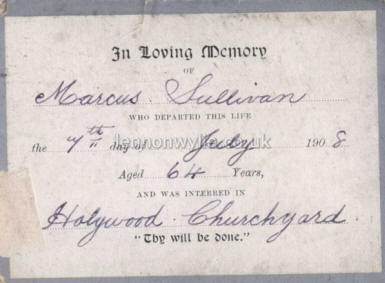 In Loving Memory
OF
Marcus Sullivan
WHO DEPARTED THIS LIFE
the 7th day of July 1908
Aged 64 Years,
AND WAS INTERRED IN
Holywood Churchyard.
"Thy will be done."